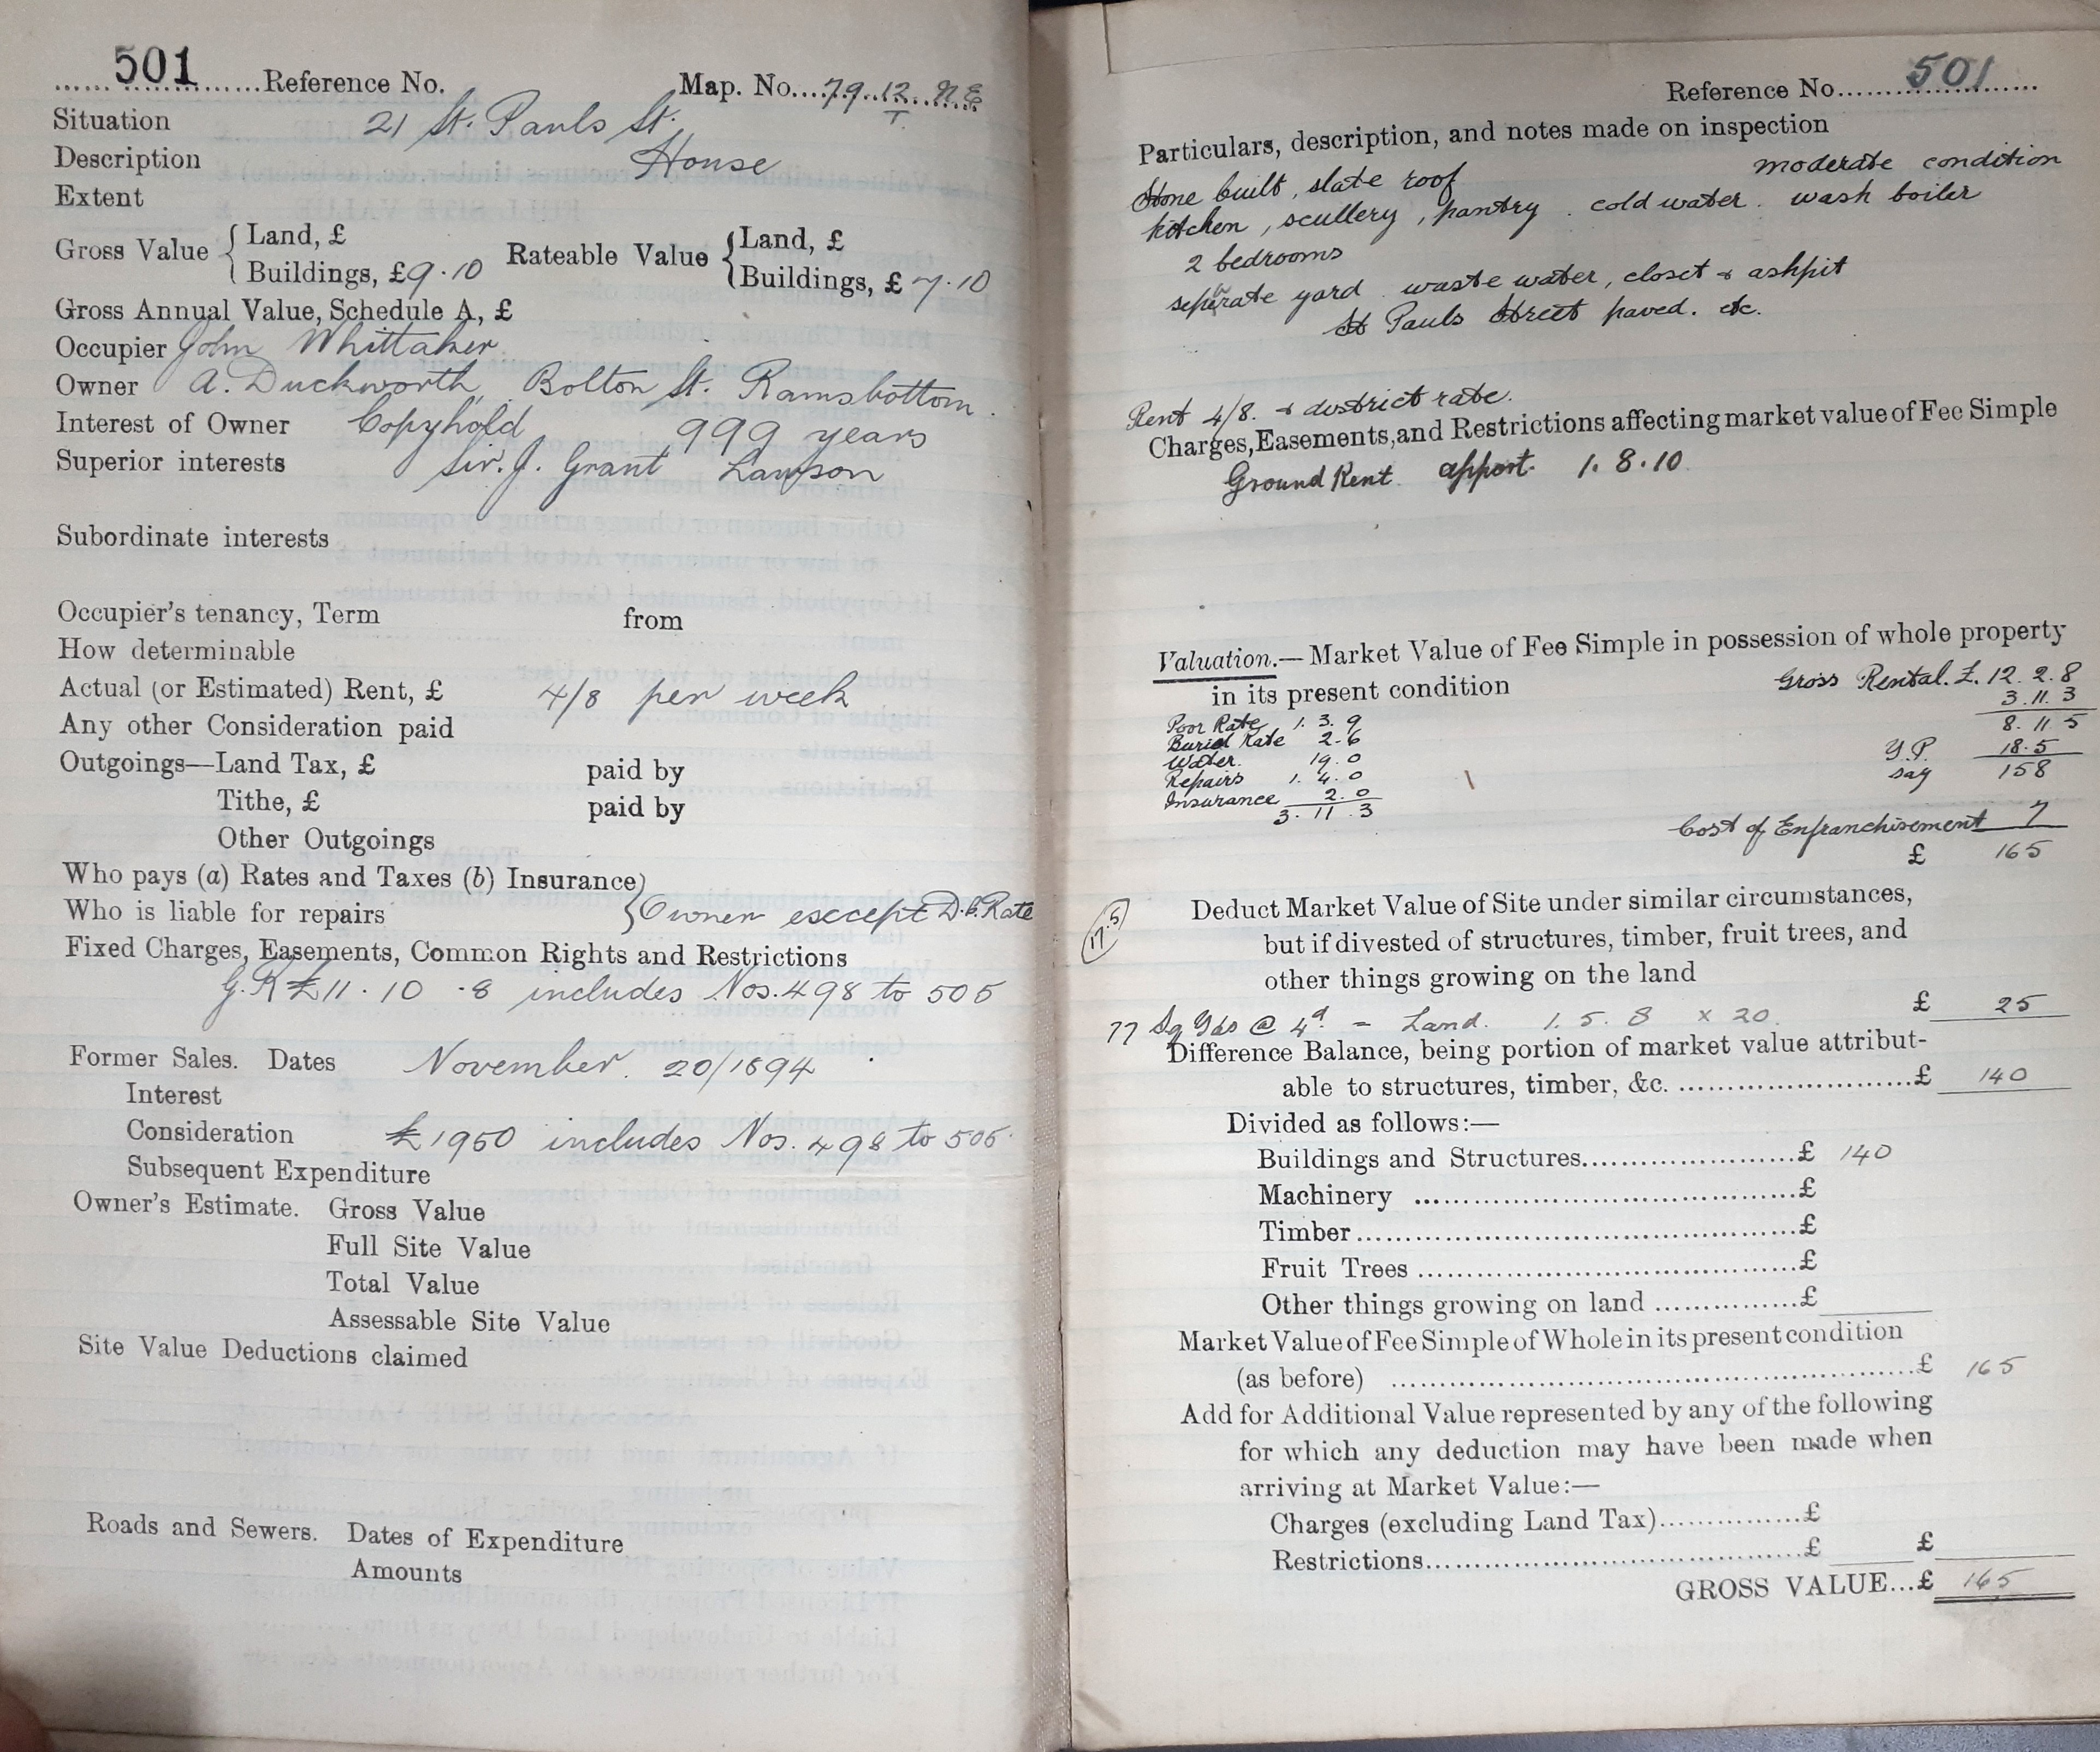 501 Reference No. Map. No. 79.12. N.E
T.
Situation 21 St. Pauls St.
Description House
Extent
Gross Value { Land, £ Rateable Value { Land, £
Buildings, £ 9.10 Buildings, £ 7.10
Gross Annual Value, Schedule A, £
Occupier John Whittaker
Owner A. Duckworth, Bolton St. Ramsbottom.
Interest of Owner Copyhold 999 years
Superior interests Sir. J. Grant Lawson
Subordinate interests
Occupier's tenancy, Term from
How determinable
Actual (or Estimated) Rent, £ 4/8 per week
Any other Consideration paid
Outgoings—Land Tax, £ paid by
Tithe, £ paid by
Other Outgoings
Who pays (a) Rates and Taxes (b) Insurance}
Who is liable for repairs } Owner except D.C. Rate
Fixed Charges, Easements, Common Rights and Restrictions
G.R £11.10.8 includes Nos. 498 to 505
Former Sales. Dates November. 20/1894
Interest
Consideration £1950 includes Nos. 498 to 505.
Subsequent Expenditure
Owner's Estimate. Gross Value
Full Site Value
Total Value
Assessable Site Value
Site Value Deductions claimed
Roads and Sewers. Dates of Expenditure
Amounts
Reference No. 501
Particulars, description, and notes made on inspection
Stone built, slate roof moderate condition
kitchen, scullery, pantry. cold water. wash boiler
2 bedrooms
seperate yard waste water, closet & ashpit
St Pauls Street paved. etc.
Rent 4/8. & district rate.
Charges, Easements, and Restrictions affecting market value of Fee Simple
Ground Rent apport. 1.8.10
Valuation.—Market Value of Fee Simple in possession of whole property
in its present condition Gross Rental. £. 12.2.8
3.11.3
Poor Rate 1.3.9 8.11.5
Burial Rate 2.6 Y.P. 18.5
Water. 19.0 say 158
Repairs 1.4.0
Insurance 2.0 Cost of Enfranchisement 7
3.11.3 £ 165
17.5 Deduct Market Value of Site under similar circumstances,
but if divested of structures, timber, fruit trees, and
other things growing on the land
£ 25
77 Sq Yds @ 4d. = Land. 1.5.8 x 20
Difference Balance, being portion of market value attribut-
able to structures, timber, &c. £ 140
Divided as follows:—
Buildings and Structures £ 140
Machinery £
Timber £
Fruit Trees £
Other things growing on land £
Market Value of Fee Simple of Whole in its present condition
(as before) £ 165
Add for Additional Value represented by any of the following
for which any deduction may have been made when
arriving at Market Value:—
Charges (excluding Land Tax) £
Restrictions £ £
GROSS VALUE...£ 165